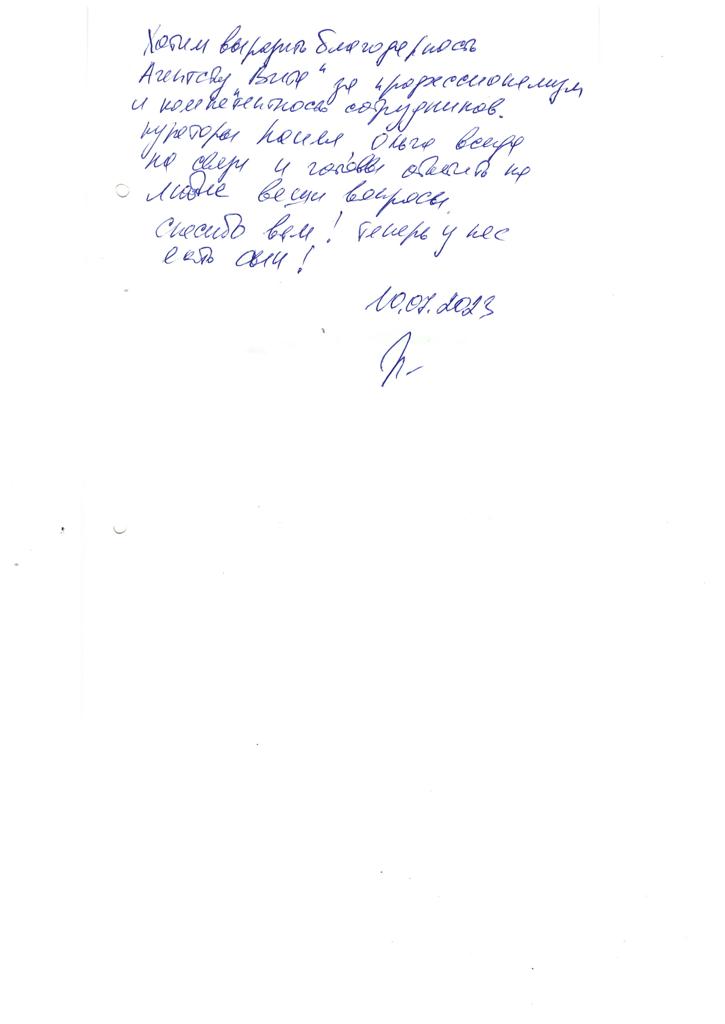 Хотим выразить благодарность
Агентству Вита" за профессионализм
и компетентность сотрудников.
кураторы Ольга всегда
на связи и готовы ответить на
любые вопросы.
Спасибо вам! теперь у нас
есть сын!
10.07.2023